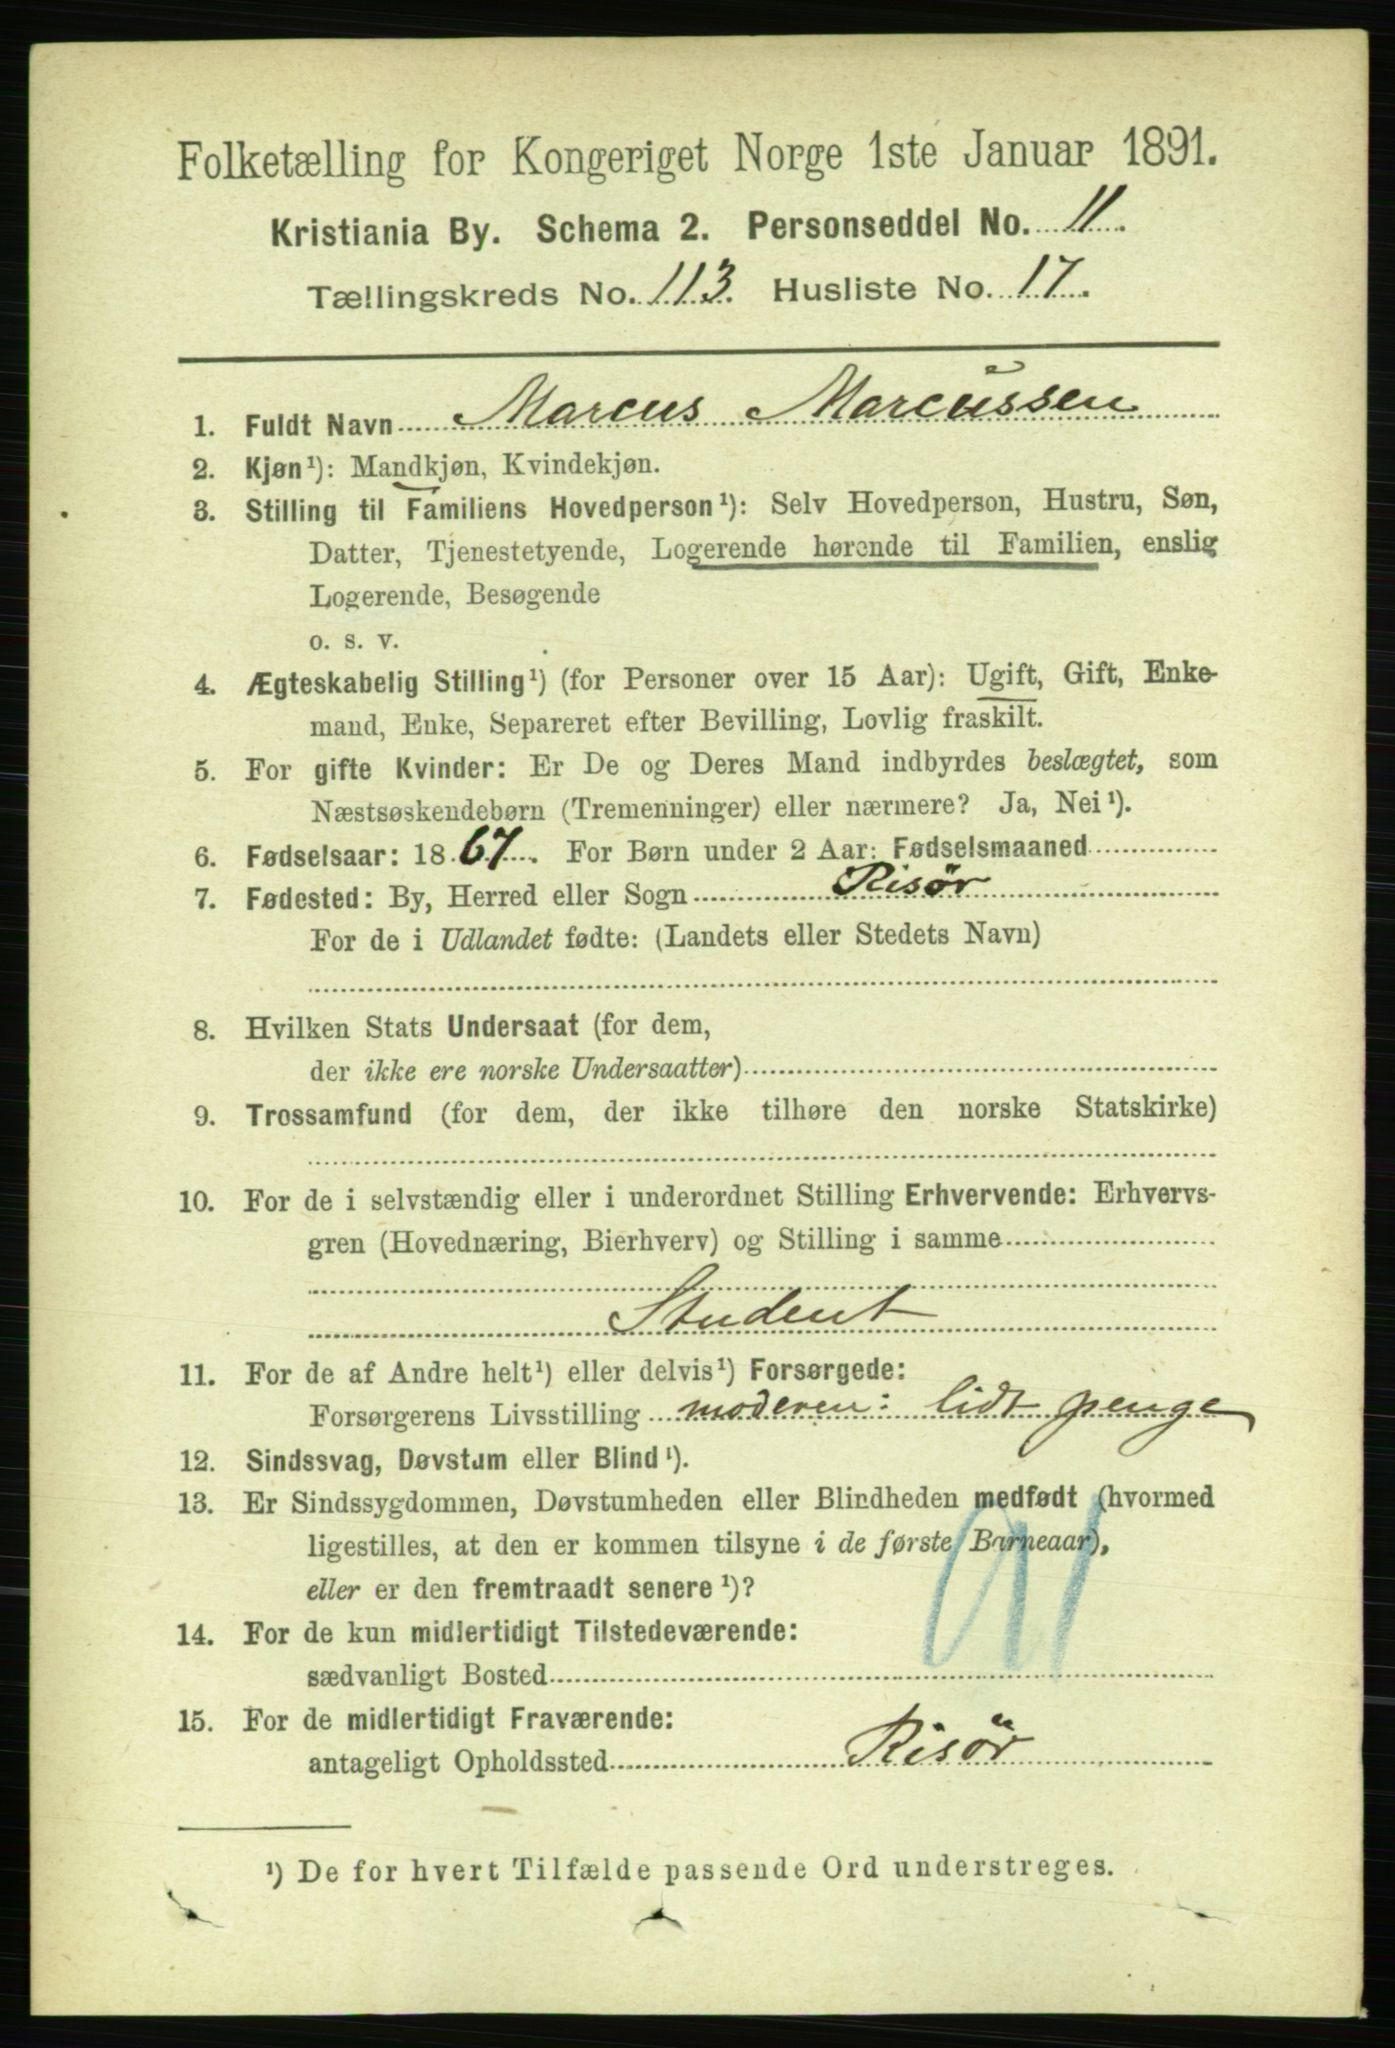 Folketælling for Kongeriget Norge 1ste Januar 1891.
Kristiania By. Schema 2. Personseddel No. 11.
Tællingskreds No. 113. Husliste No. 17.
1. Fuldt Navn Marcus Marcussen
2. Kjøn¹): Mandkjøn, Kvindekjøn.
3. Stilling til Familiens Hovedperson¹): Selv Hovedperson, Hustru, Søn,
Datter, Tjenestetyende, Logerende hørende til Familien, enslig
Logerende, Besøgende
o. s. v.
4. Ægteskabelig Stilling¹) (for Personer over 15 Aar): Ugift, Gift, Enke-
mand, Enke, Separeret efter Bevilling, Lovlig fraskilt.
5. For gifte Kvinder: Er De og Deres Mand indbyrdes beslægtet, som
Næstsøskendebørn (Tremenninger) eller nærmere? Ja, Nei¹).
6. Fødselsaar: 1867. For Børn under 2 Aar: Fødselsmaaned
7. Fødested: By, Herred eller Sogn Risör
For de i Udlandet fødte: (Landets eller Stedets Navn)
8. Hvilken Stats Undersaat (for dem,
der ikke ere norske Undersaatter)
9. Trossamfund (for dem, der ikke tilhøre den norske Statskirke)
10. For de i selvstændig eller i underordnet Stilling Erhvervende: Erhvervs-
gren (Hovednæring, Bierhverv) og Stilling i samme
Student
11. For de af Andre helt¹) eller delvis¹) Forsørgede:
Forsørgerens Livsstilling moderen: lidt penge
12. Sindssvag, Døvstum eller Blind¹).
13. Er Sindssygdommen, Døvstumheden eller Blindheden medfødt (hvormed
ligestilles, at den er kommen tilsyne i de første Barneaar),
eller er den fremtraadt senere¹)?
14. For de kun midlertidigt Tilstedeværende:
sædvanligt Bosted
15. For de midlertidigt Fraværende:
antageligt Opholdssted Risör
¹) De for hvert Tilfælde passende Ord understreges.